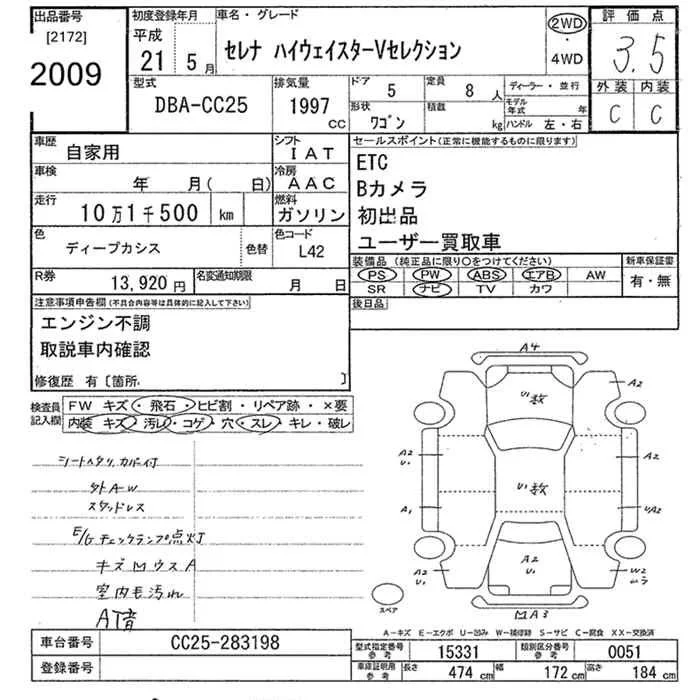 出品番号
[2172]
2009
初度登録年月
平成
21 5月
車名・グレード
セレナ ハイウェイスターVセレクション
2WD
・
4WD
評価点
3.5
外装 内装
C C
型式
DBA-CC25
排気量
1997
CC
ドア 5
定員 8 人
ディーラー・並行
形状 ワゴン
積載 kg
モデル年式 年
ハンドル 左・右
車歴 自家用
シフト IAT
車検 年 月( 日)
冷房 AAC
走行 10万1千500 km
燃料 ガソリン
色 ディープカシス 色替
色コード L42
R券 13,920円
名変通知期限 月 日
セールスポイント(正常に機能するものに限ります)
ETC
Bカメラ
初出品
ユーザー買取車
装備品(純正品に限り〇をつけてください)
新車保証書
PS PW ABS エアB AW
SR ナビ TV カワ
有・無
後日品
注意事項申告欄(不具合内容等は具体的に記入して下さい)
エンジン不調
取説車内確認
修復歴 有〔箇所. 〕
検査員記入欄
FW キズ・飛石・ヒビ割・リペア跡・×要
内装 キズ・汚れ・コゲ・穴・スレ・キレ・破レ
シートヘタリ カバー付
外A-W
スタッドレス
E/Gチェックランプ点灯
キズMウスA
室内毛汚れ
AT音
A4
U1枚
A2
A2
U1
A2
U1枚
A1
UA2
A2
U1
A2
U1
W2
スペア
MA3
A-キズ E-エクボ U-凹み W-補修跡 S-サビ C-腐食 XX-交換済
車台番号 CC25-283198
登録番号
型式指定番号 参考 15331
類別区分番号 参考 0051
車庫証明用 参考 長さ 474 cm 幅 172 cm 高さ 184 cm